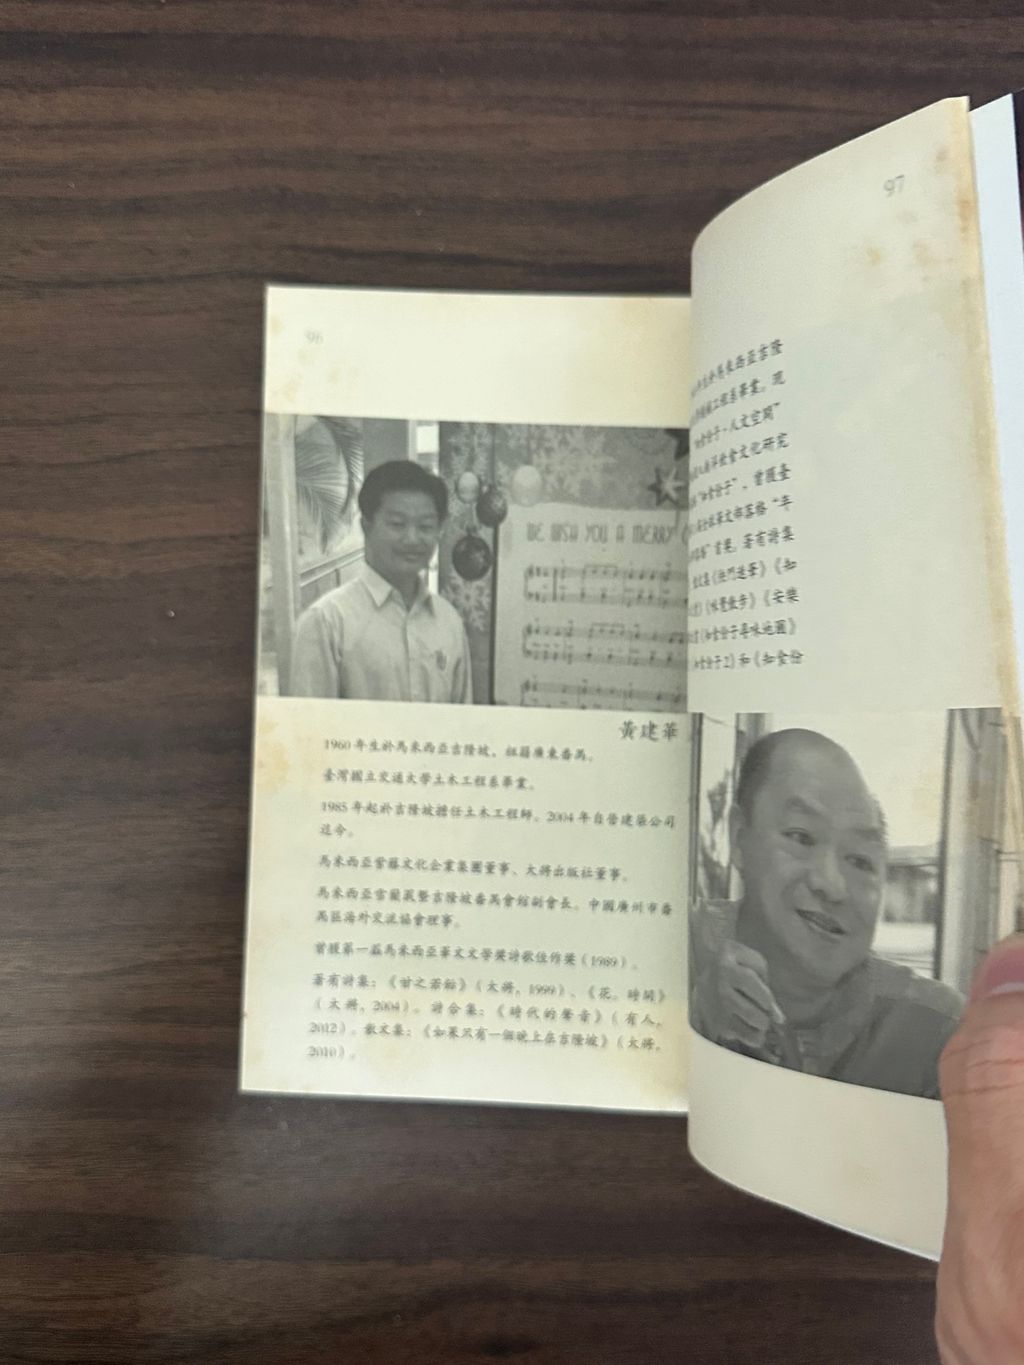 96
WE WISH YOU A MERRY
黃建華
1960 年生於馬來西亞吉隆坡，祖籍廣東番禺。
臺灣國立交通大學土木工程系畢業。
1985 年起於吉隆坡擔任土木工程師。2004 年自營建築公司
迄今。
馬來西亞紫藤文化企業集團董事、大將出版社董事。
馬來西亞雪蘭莪暨吉隆坡番禺會館副會長。中國廣州市番
禺區海外交流協會理事。
曾獲第一屆馬來西亞華文文學獎詩歌佳作獎（1989）。
著有詩集：《甘之若飴》（大將，1999）、《花。時間》
（大將，2004）。詩合集：《時代的聲音》（有人，
2012）。散文集：《如果只有一個晚上在吉隆坡》（大將，
2010）。
97
年生於馬來西亞吉隆
機械工程系畢業。現
“知食份子·人文空間”
南洋飲食文化研究
“知食份子”，曾獲臺
全球華文部落格“年
”首獎。著有詩集
《知
《味覺散步》《安樂
《知食份子尋味地圖》
知食份子2》和《知食份